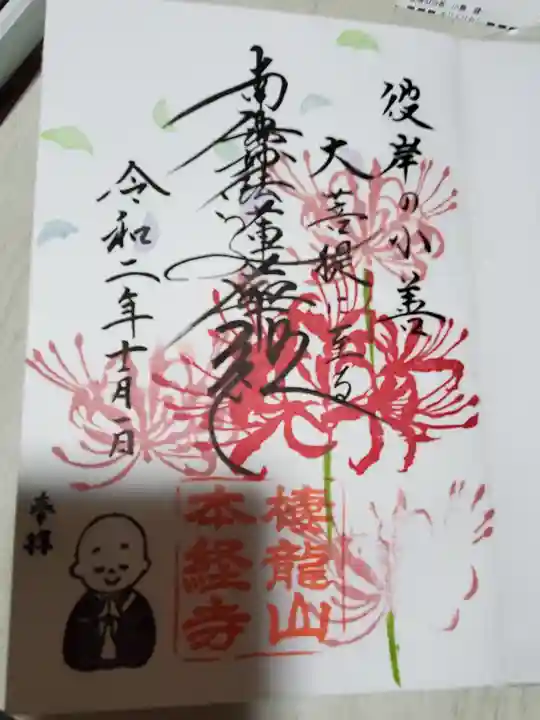 彼岸の小善
大菩提に至る
南無妙法蓮華経
令和二年十月一日
奉拝
棲龍山
本経寺